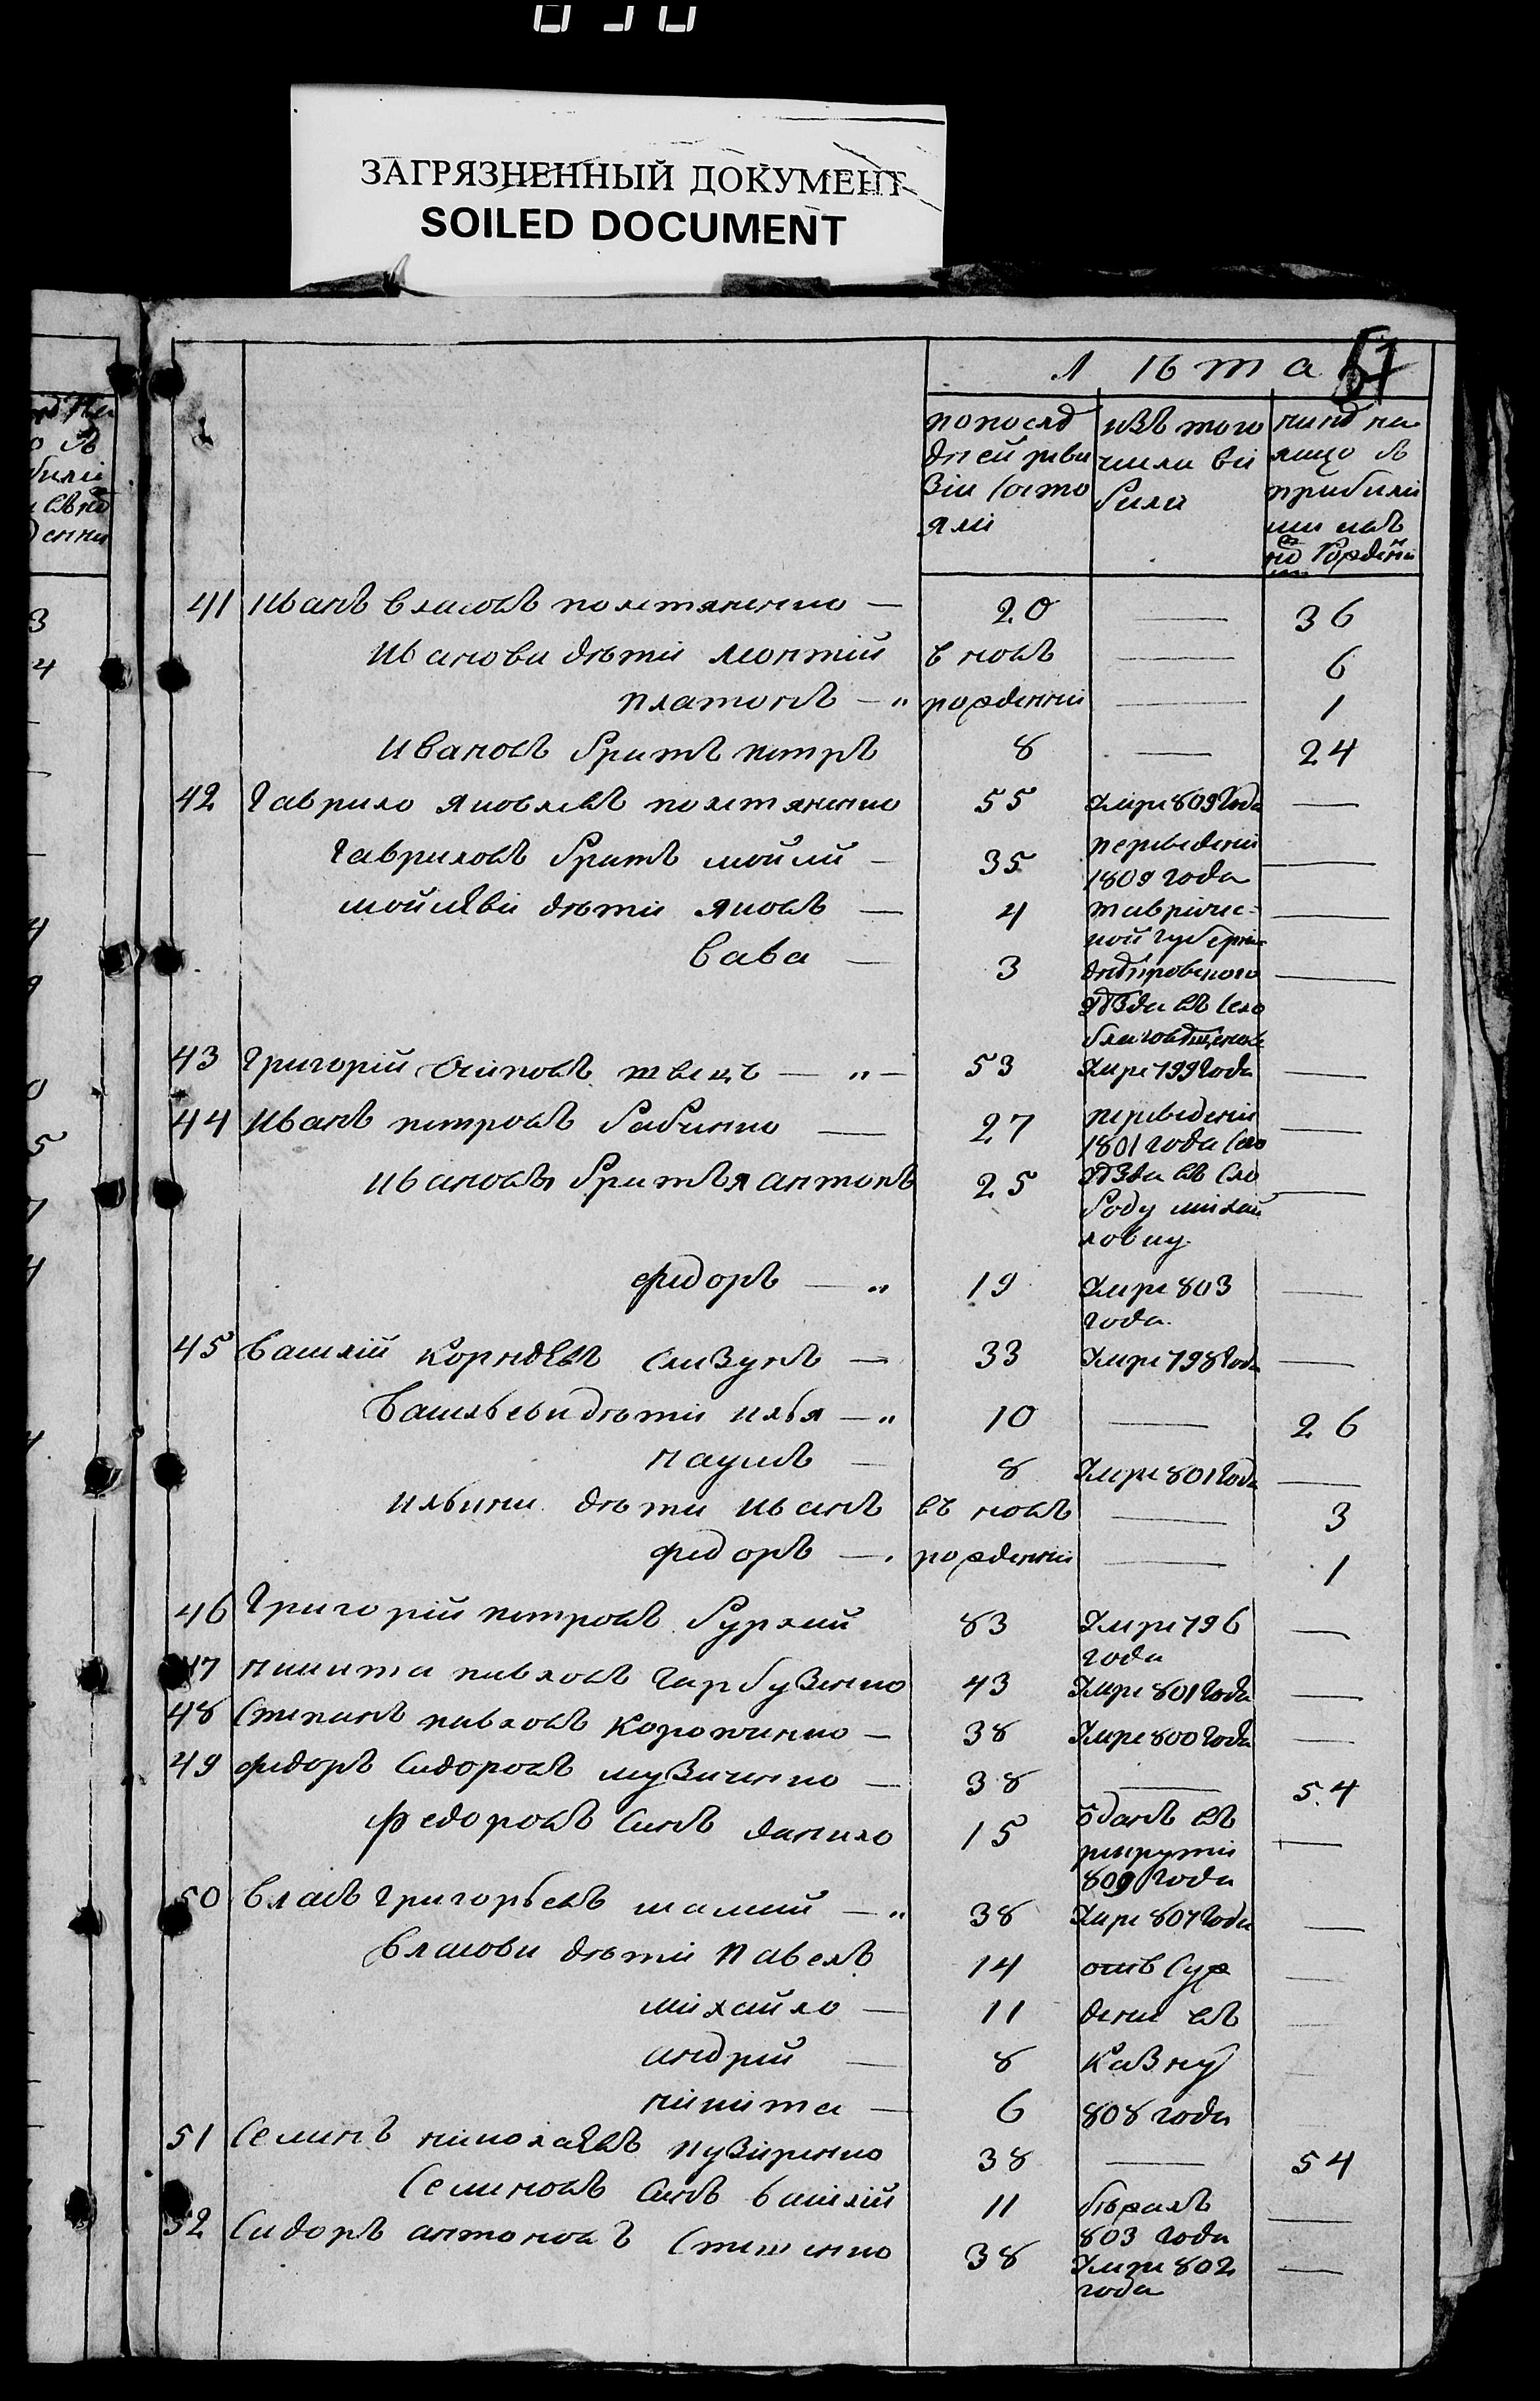 ЗАГРЯЗНЕННЫЙ ДОКУМЕНТ
SOILED DOCUMENT
Лѣта 57
по послѣ дней реви зіи состо яли
изъ того числа вы были
нинѣ на лицо съ прибили ми и въ нѣ рожденни ми
41 Иванъ власовъ полтавченко — 20 — 36
Иванови дѣти леонтий в новъ — 6
платонъ — рожденни — 1
Ивановъ братъ петръ 8 — 24
42 Гаврило яковлевъ 55 умре 809 года —
Гавриловъ братъ мойсій — 35 переведени 1809 года —
мойсѣеви дѣти яковъ — 4 таврічес= кой губерніи —
Сава — 3 днѣпровского уѣзда въ село благовѣщенск —
43 Григорій Осиповъ швецъ — 53 умре 799 года —
44 Иванъ петровъ бабенко — 27 переведени 1801 года сего —
Ивановы братья антонъ 25 уѣзда въ сло боду михай ловку. —
федоръ — 19 умре 803 года. —
45 Василій корнѣевъ слизунъ — 33 умре 798 года —
Васильеви дѣти илья — 10 — 26
наумъ — 8 умре 801 года —
Ильини дѣти иванъ въ новъ — 3
федоръ — рожденни — 1
46 Григорій петровъ бурлай 83 умре 796 года —
47 никита павловъ гарбузенко 43 умре 801 года —
48 Степанъ павловъ 38 умре 800 года —
49 федоръ Сидоровъ музиченко — 38 — 54
федоровъ синъ данило 15 отданъ въ рекрути 809 года —
50 Власъ григорьевъ — 38 умре 807 года —
Власови дѣти павелъ 14 отсуж —
михайло — 11 дени въ —
андрій — 8 казну —
никита — 6 808 года
51 Семенъ николаевъ пузиренко 38 — 54
Семеновъ синъ василій 11 бѣжалъ 803 года —
52 Сидоръ антоновъ стешенко 38 умре 802 года —